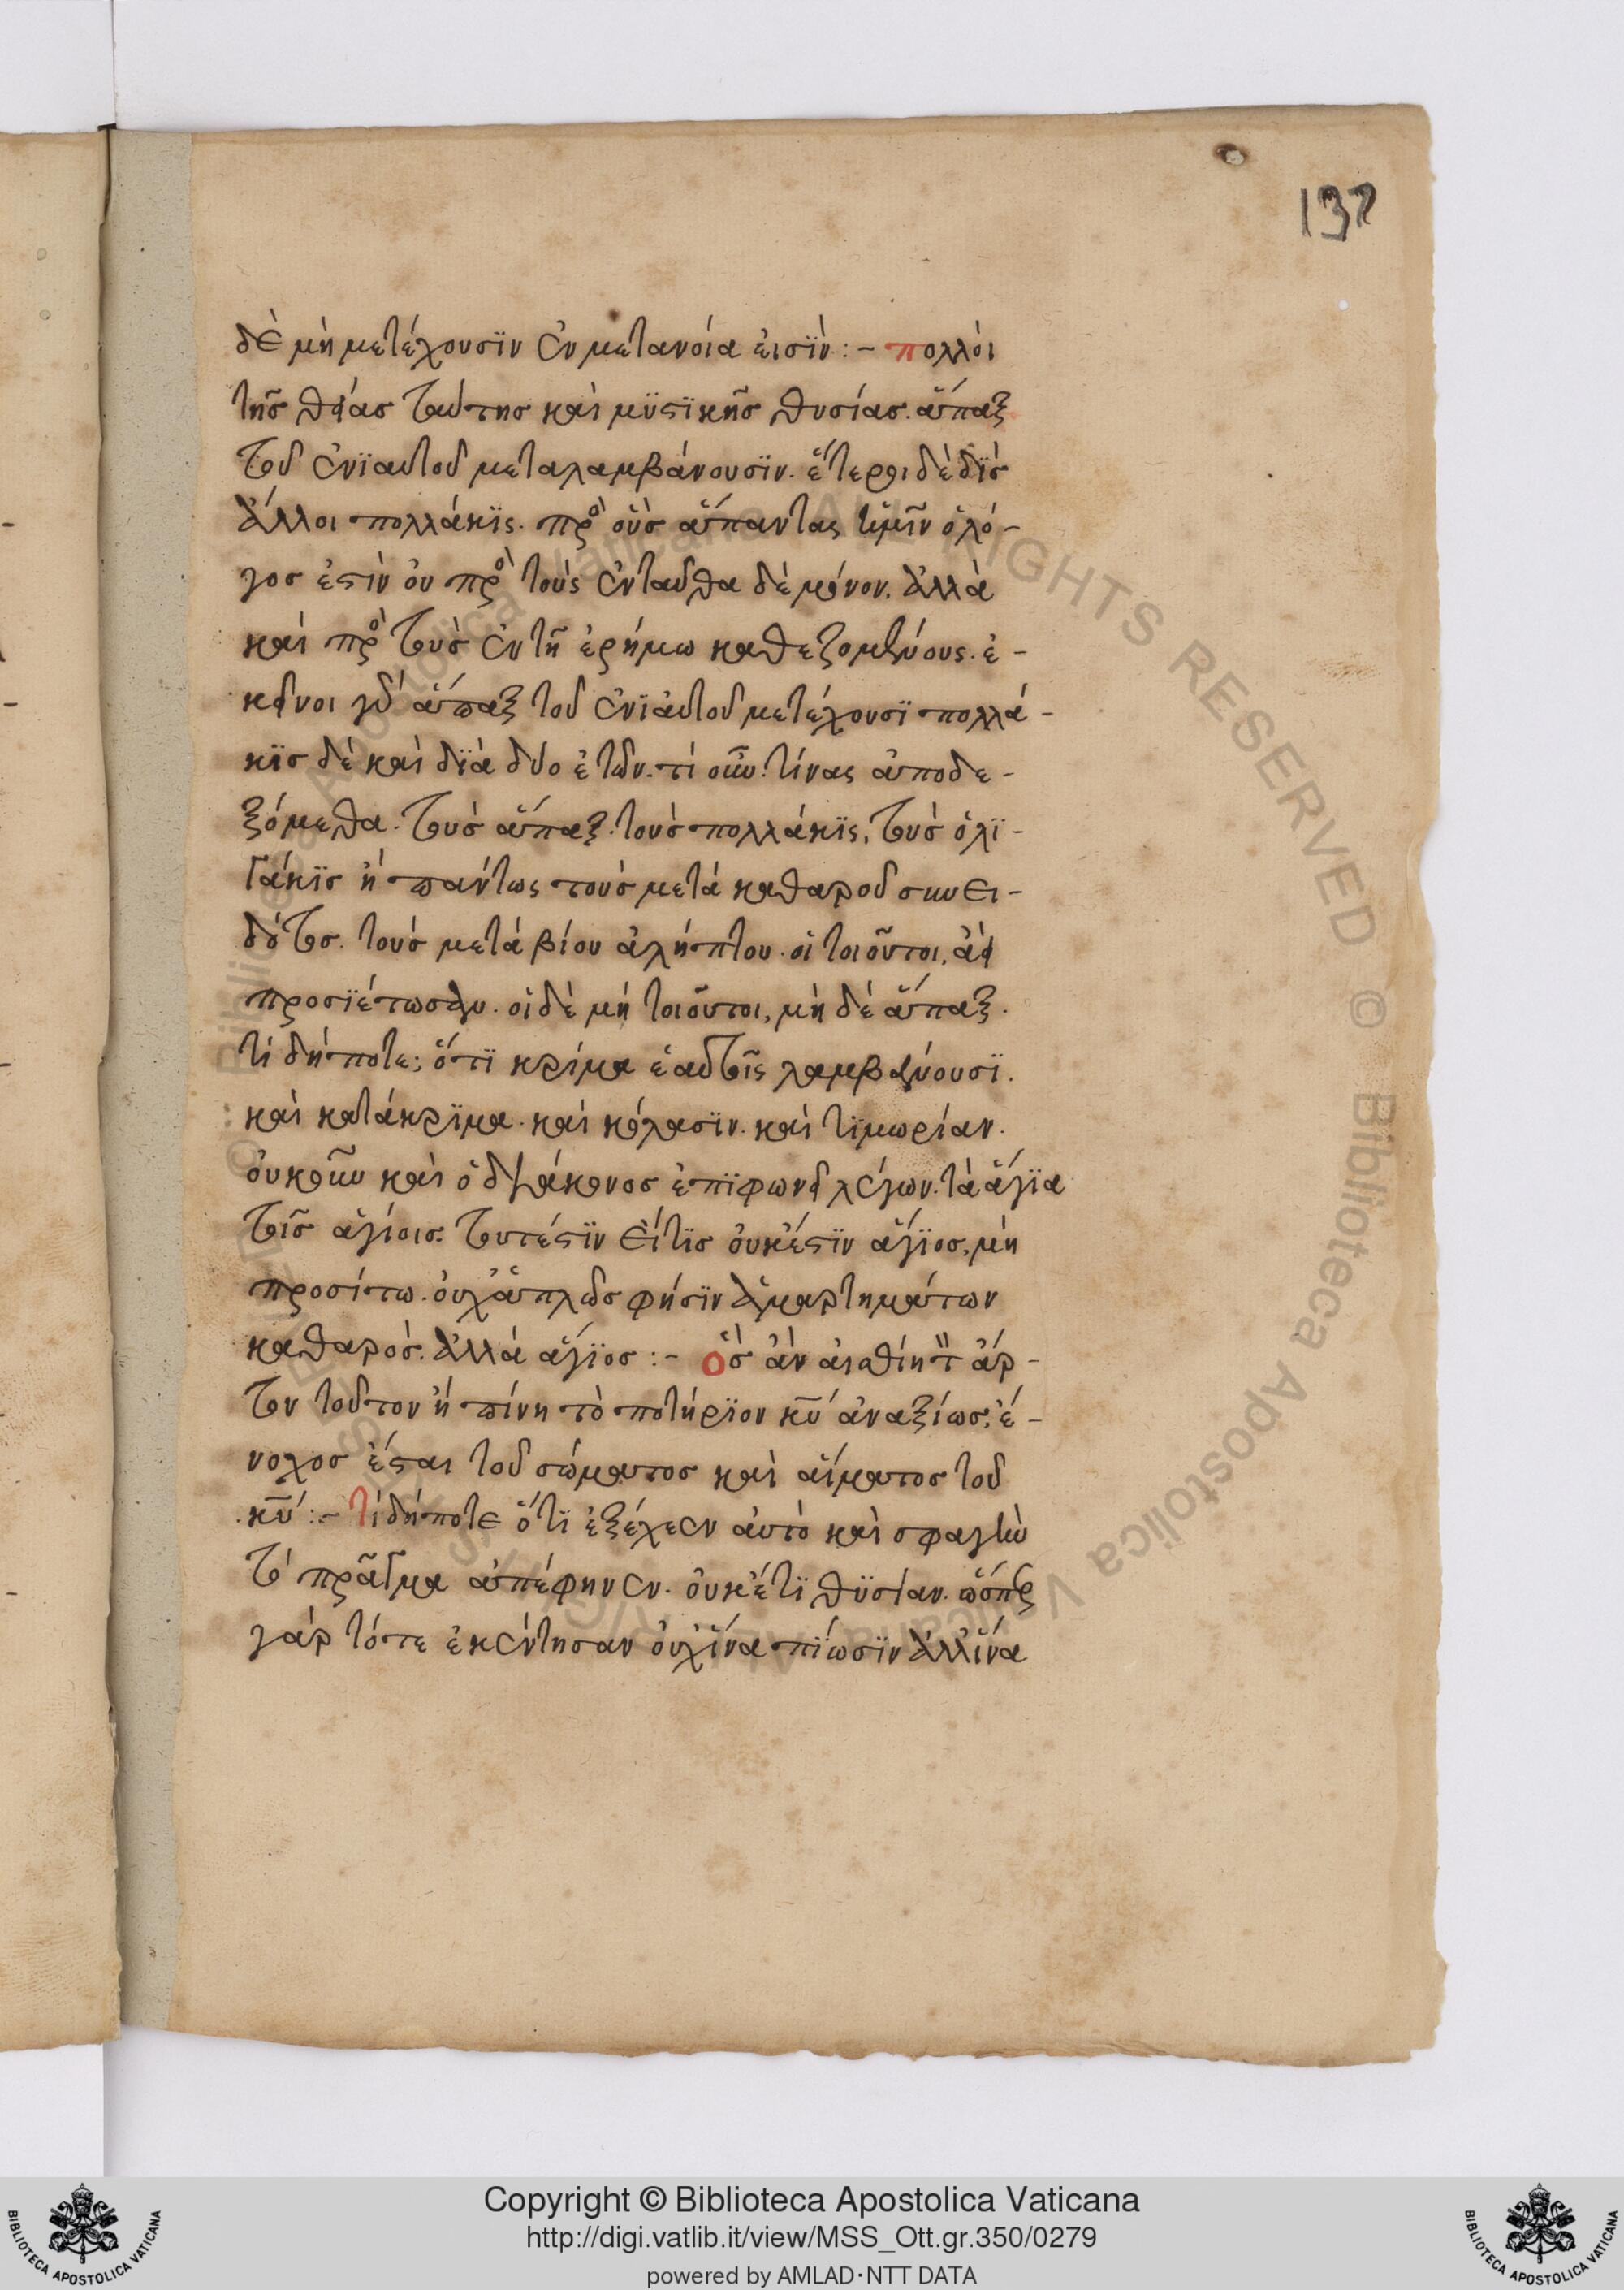 137
δὲ μὴ μετέχουσϊν ἐν μετανοία ἐισϊν :- πολλὸι
τῆσ θείασ ταύτησ καὶ μϋστϊκῆσ θυσίασ. ἅπαξ
τοῦ ἐνϊαυτοῦ μεταλαμβάνουσϊν. ἕτεροι δὲ δῒσ
ἄλλοι πολλάκϊς. πρὸ οὓσ ἅπαντας ἡμῖν ὁ λό-
γοσ ἐστὶν ὀυ πρὸ τοὺς ἐνταῦθα δὲ μόνον. ἀλλὰ
καὶ πρὸ τοὺσ ἐν τῆ ἐρήμω καθεζομένους. ἐ-
κεῖνοι γὰρ ἅπαξ τοῦ ἐνϊαυτοῦ μετέχουσϊ πολλά-
κϊσ δὲ καὶ δϊὰ δύο ἐτῶν. τί οὖν. τίνας ἀποδε-
ξόμεθα. τοὺσ ἅπαξ. τοὺσ πολλάκϊς. τοὺσ ὀλϊ-
γάκϊσ ἢ παντως τοὺσ μετὰ καθαροῦ συνει-
δότοσ. τοὺσ μετὰ βίου ἀλήπτου. οἱ τοιοῦτοι, ἀεὶ
προσϊέτωσαν. οἱ δὲ μὴ τοιοῦτοι, μὴ δὲ ἅπαξ.
τί δήποτε; ὅτϊ κρίμα ἑαυτοῖς λαμβάνουσϊ.
καὶ κατάκρϊμα. καὶ κόλασϊν. καὶ τϊμωρίαν.
ὀυκοῦν καὶ ὁ διάκονοσ ἐπϊφωνεῖ λέγων. τὰ ἅγϊα
τοῖσ ἁγίοισ. τουτέστϊν εἴτϊσ ὀυκέστϊν ἅγϊοσ, μὴ
προσίτω. ὀυχἁπλῶσ φήσϊν ἁμαρτημάτων
καθαρόσ. ἀλλὰ ἅγϊοσ :- ὃσ ἂν ἀισθίη τ ἄρ-
τον τοῦτον ἢ πίνη τὸ ποτήρϊον κυ ἀναξίωσ, ἔ-
νοχοσ ἔσται τοῦ σώματοσ καὶ αἵματοσ τοῦ
κυ :- τί δήποτε ὅτϊ ἐξέχεεν ἀυτὸ καὶ σφαγὴν
τὸ πρᾶγμα ἀπέφηνεν. ὀυκέτϊ θϋσίαν. ὥσπερ
γὰρ τότε ἐκέντησαν ὀυχἵνα πΐωσϊν ἀλλἵνα
Copyright © Biblioteca Apostolica Vaticana
http://digi.vatlib.it/view/MSS_Ott.gr.350/0279
powered by AMLAD·NTT DATA
BIBLIOTECA APOSTOLICA VATICANA
BIBLIOTECA APOSTOLICA VATICANA